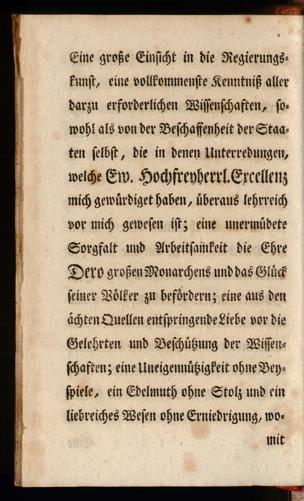 Eine große Einsicht in die Regierungs-
kunst, eine vollkommenste Kenntniß aller
darzu erforderlichen Wissenschaften, so-
wohl als von der Beschaffenheit der Staa-
ten selbst, die in denen Unterredungen,
welche Ew. Hochfreyherrl. Excellenz
mich gewürdiget haben, überaus lehrreich
vor mich gewesen ist; eine unermüdete
Sorgfalt und Arbeitsamkeit die Ehre
Dero großen Monarchens und das Glück
seiner Völker zu befördern; eine aus den
ächten Quellen entspringende Liebe vor die
Gelehrten und Beschützung der Wissen-
schaften; eine Uneigennützigkeit ohne Bey-
spiele, ein Edelmuth ohne Stolz und ein
liebreiches Wesen ohne Erniedrigung, wo-
mit